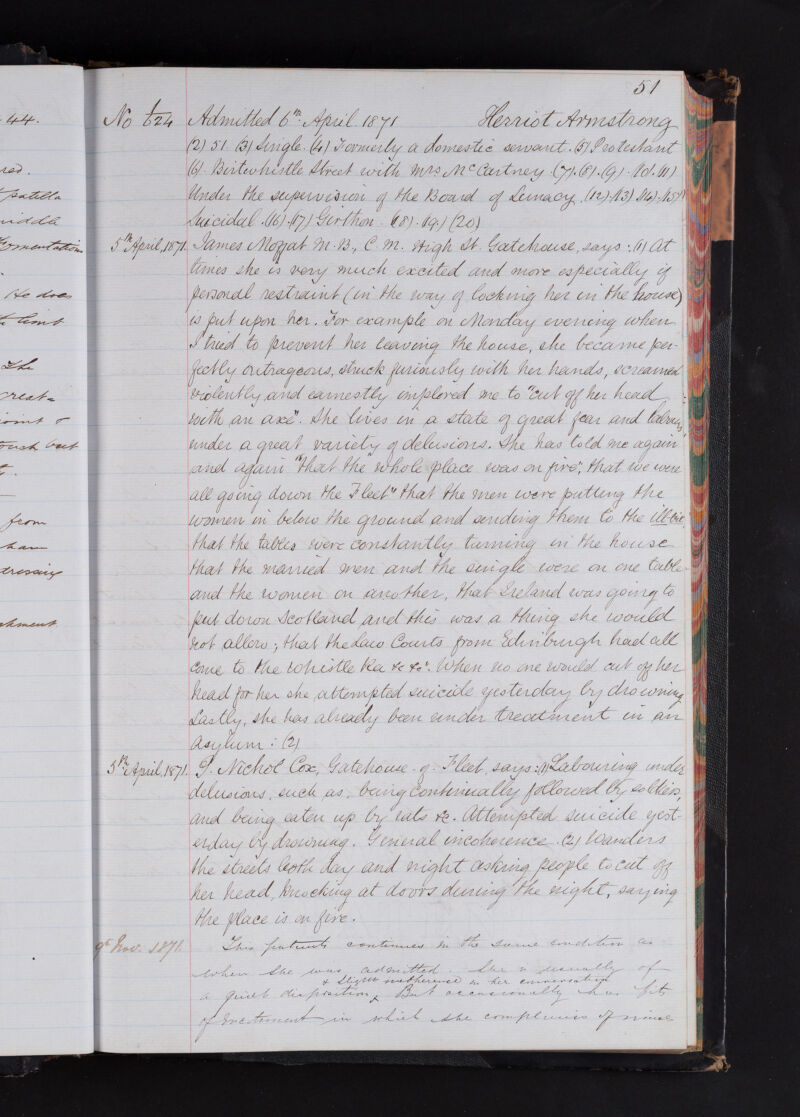 51
No 1/624 Admitted 6th April 1871 Herriot Armstrong
(2) 51. (3) Single. (4) Formerly a domestic servant. (5) Protestant
(6) Birtwhistle Street with Mrs McCartney. (7). (8). (9). (10). (11)
Under the supervision of the Board of Lunacy. (12). (13). (14). (15)
Suicidal. (16). (17) Girthon. (18). (19.) (20)
5th April, 1871. James Moffat M.B., C.M. High St. Gatehouse, says: (1) At
times she is very much excited and more especially if
personal restraint (in the way of locking her in the house)
is put upon her. For example on Monday evening when
I tried to prevent her leaving the house, she became per-
fectly outrageous, struck furiously with her hands, screamed
violently, and earnestly implored me to "cut off her head
with an axe". She lives in a state of great fear and labours
under a great variety of delusions. She has told me again
and again "that the whole place was on fire", that we were
all going down the Fleet" that the men were putting the
women in below the ground and sending them to the
that the tables were constantly turning in the house
that the married men and the single were on one table
and the women on another, that Ireland was going to
put down Scotland and this was a thing she would
not allow; that the Law Courts from Edinburgh had all
come to the Whistle &c &c". When no one would cut off her
head for her she attempted suicide yesterday by drowning
Lastly, she has already been under treatment in an
asylum: (2)
5th April, 1871. Nichol Cox, Gatehouse of Fleet, says: (1) Labouring under
delusions, such as, being continually followed by soldiers,
and being eaten up by rats &c. Attempted suicide yest-
erday by drowning. General incoherence. (2) Wanders
the streets both day and night asking people to cut off
her head, knocking at doors during the night, saying
the place is on fire.
9th Nov. 1871. This patient continues in the same condition as
when she was admitted. She is usually of
& slight incoherence in her conversation
a quiet disposition, But occasionally has fits
of Excitement in which she complains of
44.
red.
patella
middle
fomentation
He does
to limit
The
joint &
but
from
have
dressing